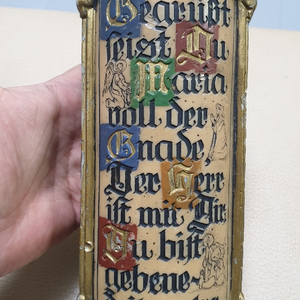 Gegrüßt
seist Du
Maria
voll der
Gnade,
Der Herr
ist mit Dir
Du bist
gebene-